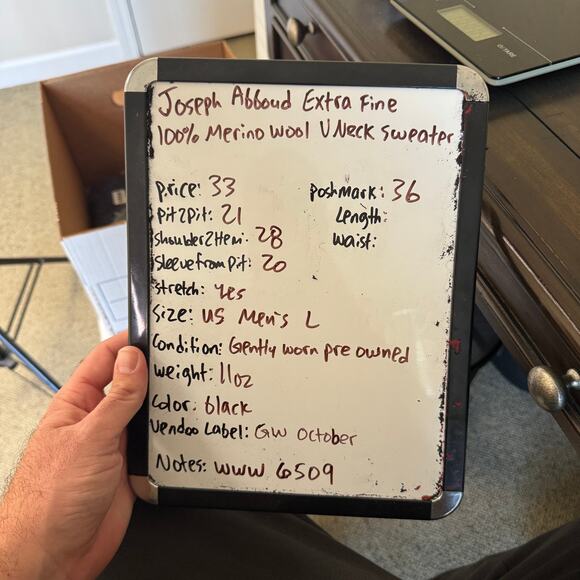 Joseph Abboud Extra Fine
100% Merino Wool V Neck Sweater
Price: 33
Poshmark: 36
Pit2Pit: 21
Length:
Shoulder2Hem: 28
Waist:
Sleeve from Pit: 20
Stretch: Yes
Size: US Men's L
Condition: Gently worn pre owned
Weight: 11oz
Color: black
Vendoo Label: GW October
Notes: WWW 6509